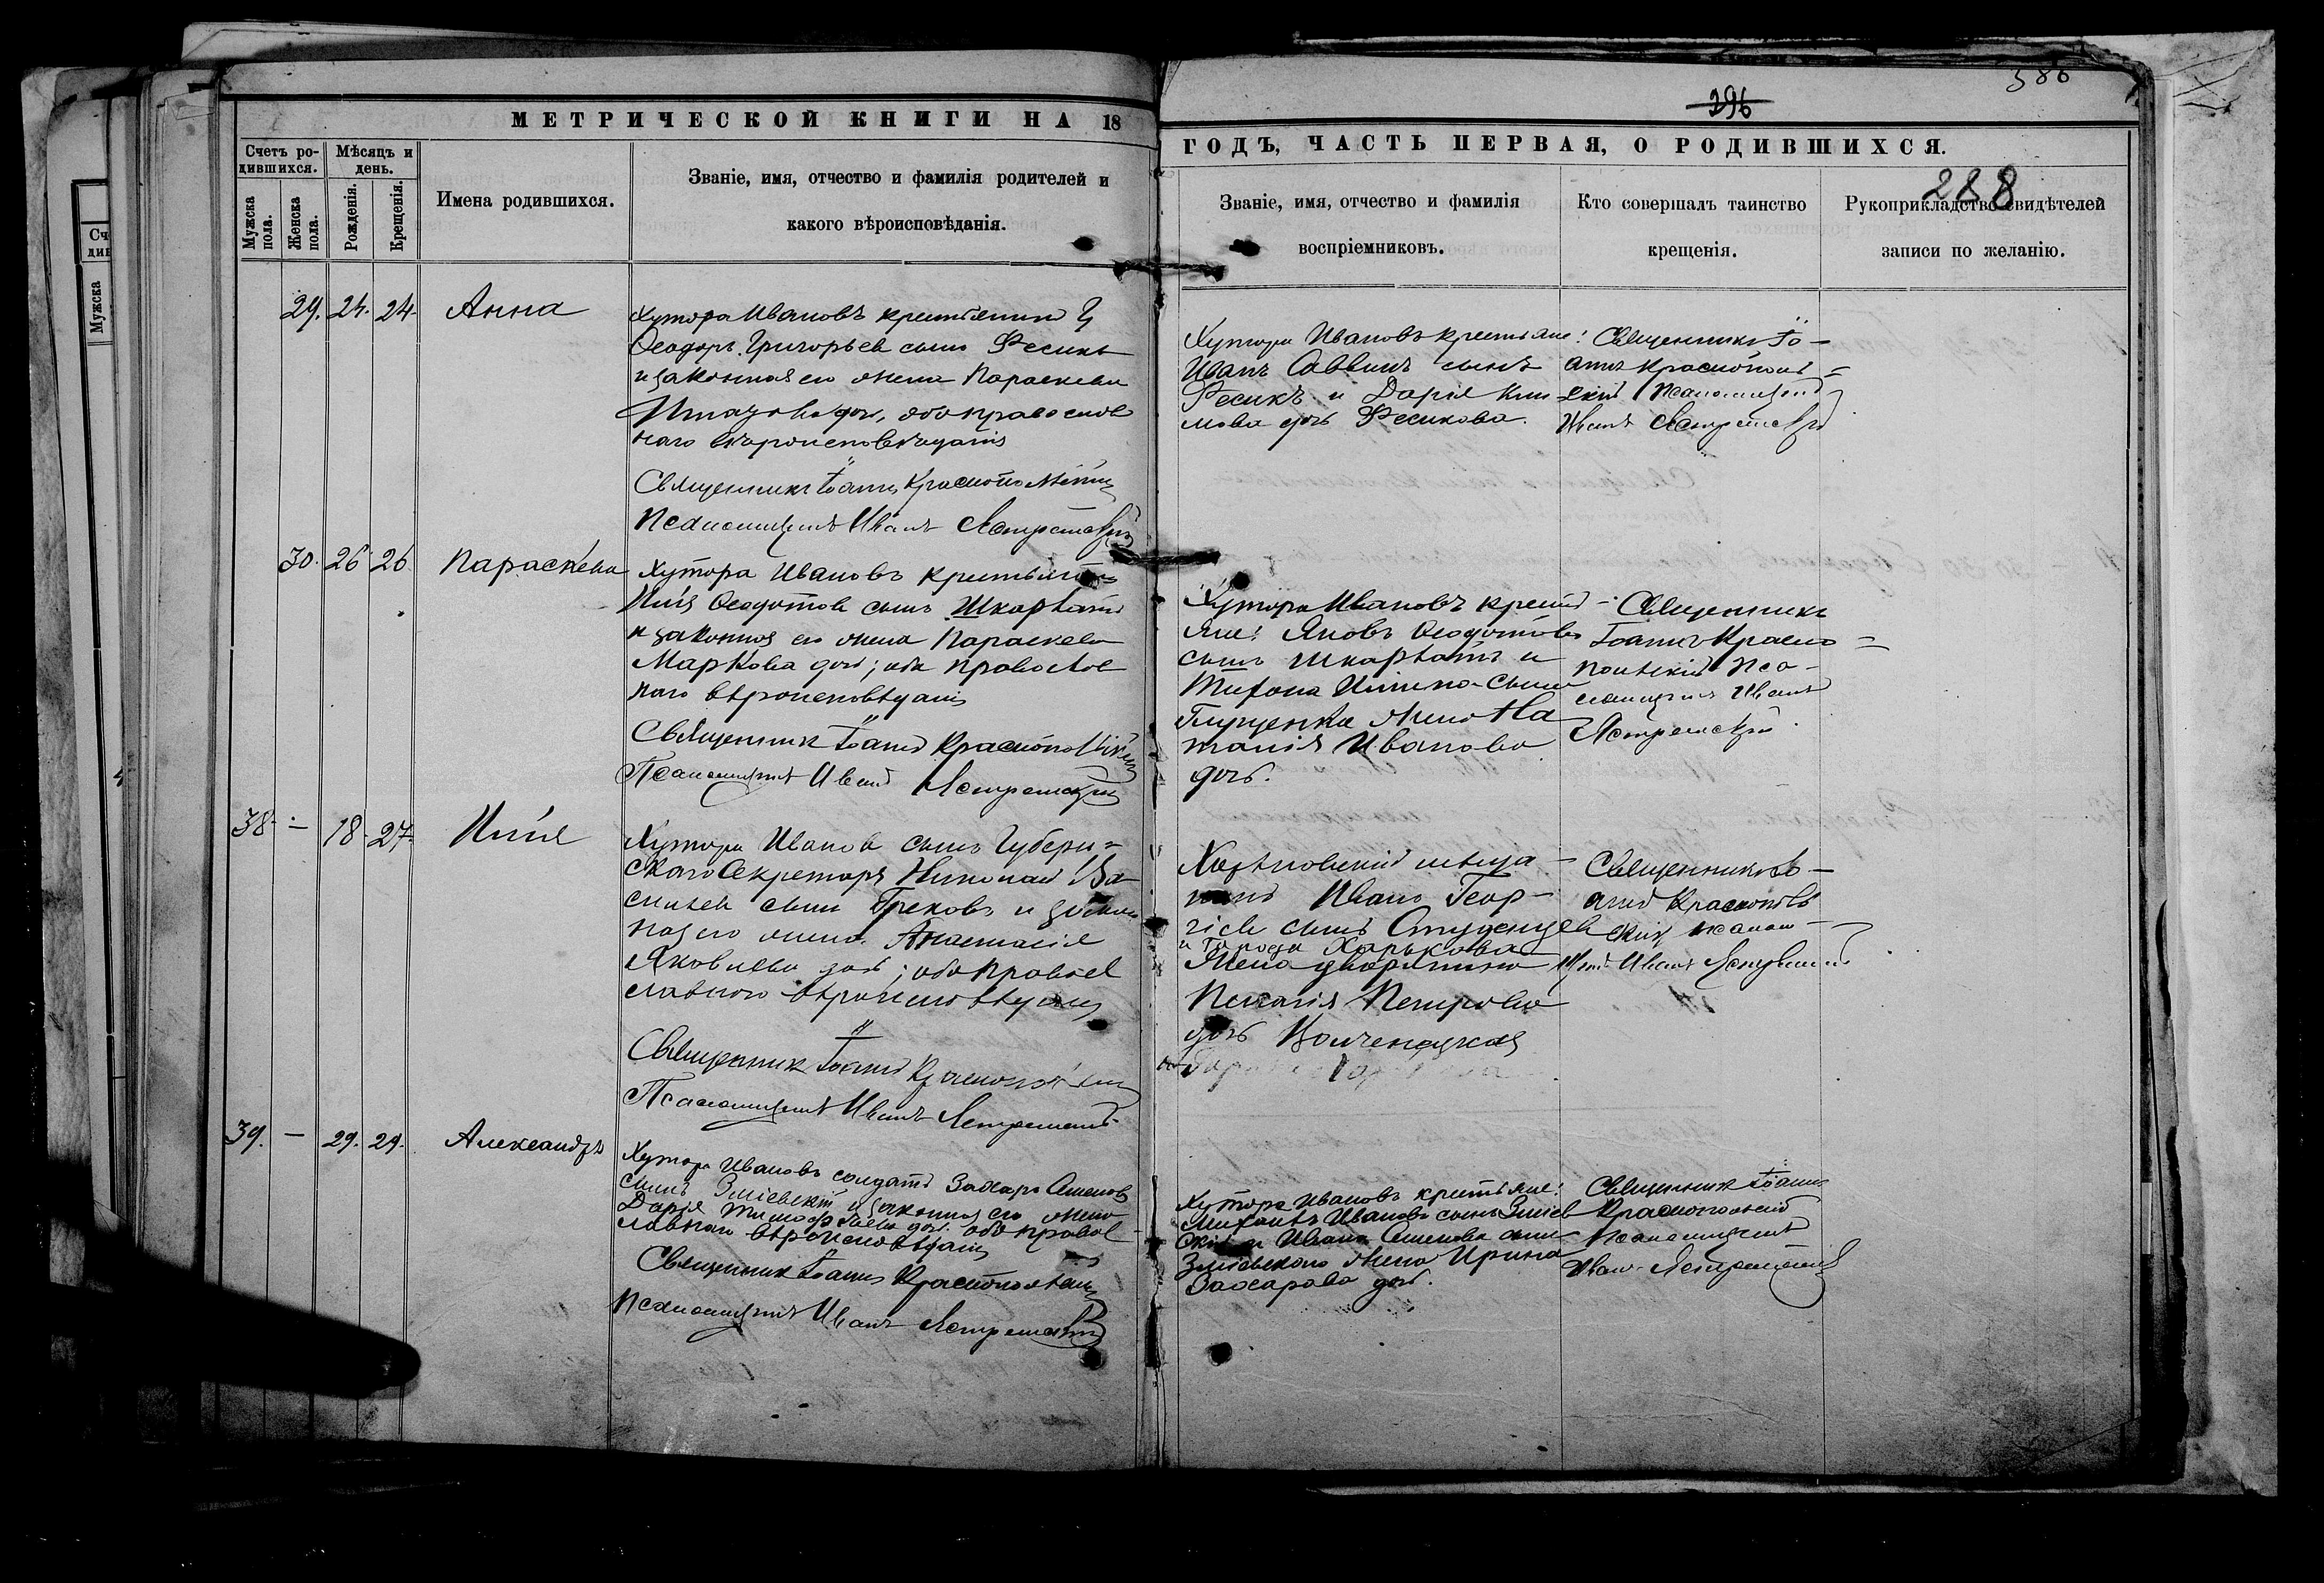 586
296
МЕТРИЧЕСКОЙ КНИГИ НА 18
ГОДЪ, ЧАСТЬ ПЕРВАЯ, О РОДИВШИХСЯ.
288
Счетъ ро-
дившихся.
Мѣсяцъ и
день.
Мужска
пола.
Женска
пола.
Рожденія.
Крещенія.
Имена родившихся.
Званіе, имя, отчество и фамилія родителей и
какого вѣроисповѣданія.
Званіе, имя, отчество и фамилія
воспріемниковъ.
Кто совершалъ таинство
крещенія.
Рукоприкладство свидѣтелей
записи по желанію.
29. 24. 24. Анна
Хутора Ивановъ крестьянинъ
Ѳеодоръ Григорьев сынъ Фесикъ
и законная его жена Параскева
дочь, оба православ
наго вѣроисповѣданія
Священникъ Іоаннъ Краснопольскій
Псаломщикъ Иванъ Ястремскій
Хутора Ивановъ крестьяне:
Иванъ Саввинъ сынъ
Фесикъ и Дарія Кли
мова дочь Фесикова.
Священникъ Іо-
аннъ Краснополь=
скій Псаломщикъ
Иванъ Ястремскій
30. 26 26 Параскева
Хутора Ивановъ крестьянинъ
Илія Ѳеодотов сынъ Шкарбанъ
и законная его жена Параскева
Маркова дочь; оба православ
наго вѣроисповѣданія
Священникъ Іоаннъ Краснопольскій
Псаломщикъ Иванъ Ястремскій
Хутора Ивановъ крестья-
яне: Яковъ Ѳеодотовъ
сынъ Шкарбанъ и
Тихона сына
Глущенка жена На
талія Иванова
дочь.
Священникъ
Іоаннъ Красно=
польскій Пса-
ломщикъ Иванъ
Ястремскій.
38. - 18. 27. Илія
Хутора Иванов сынъ Губерн=
скаго Секретаря Николай Ва
сильев сынъ Грековъ и закон
ная его жена Анастасія
Яковлева дочь; оба правос
лавнаго вѣроисповѣданія
Священникъ Іоаннъ Краснопольскій
Псаломщикъ Иванъ Ястремскій
Харьковскій мѣща-
нинъ Иванъ Геор-
гіев сынъ Студенцев
и Города Харькова
жена дворянина
Пелагія Петрова
дочь
Священникъ Іо-
аннъ Краснополь
скій, псалом-
щикъ Иванъ Ястремскій
39. - 29. 29. Александръ
Хутора Ивановъ солдатъ Захаръ Семенов
сынъ Зміевскій и законная его жена
Дарія Тимофѣева дочь. оба правос-
лавнаго вѣроисповѣданія
Священникъ Іоаннъ Краснопольскій
Псаломщикъ Иванъ Ястремскій
Хутора Ивановъ крестьяне:
Михаилъ Ивановъ сынъ Зміев
скій и Ивана Семенова сына
Зміевскаго жена Ирина
Захарова дочь.
Священникъ Іоаннъ
Краснопольскій
псаломщикъ
Иванъ Ястремскій